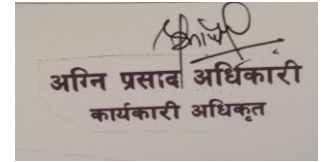 अग्नि प्रसाद अधिकारी
कार्यकारी अधिकृत